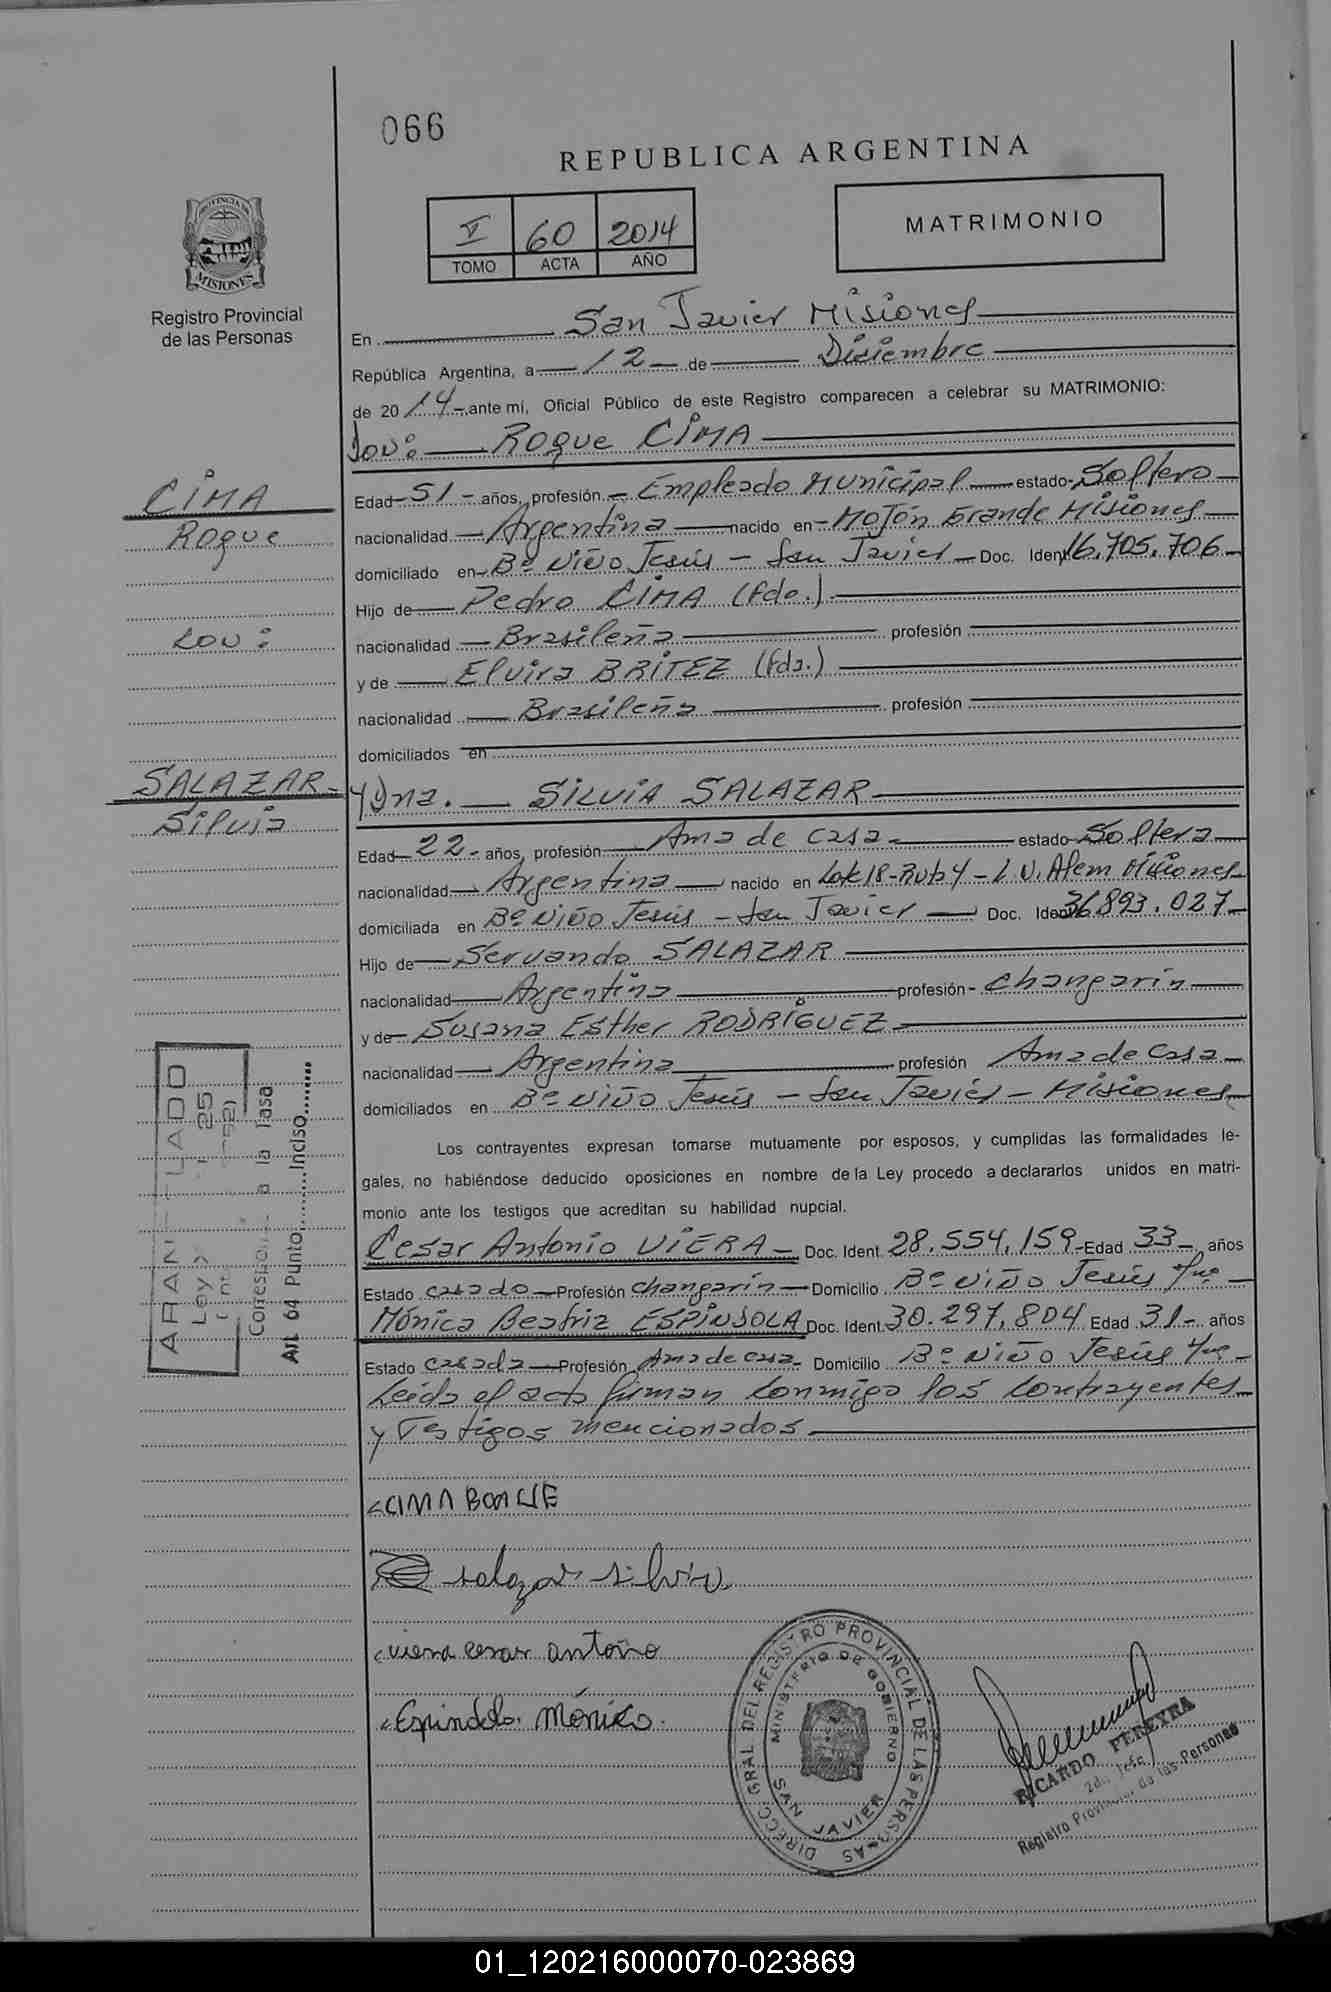 066
REPUBLICA ARGENTINA
PROVINCIA DE
MISIONES
Registro Provincial
de las Personas
I 60 2014
TOMO ACTA AÑO
MATRIMONIO
En San Javier Misiones
República Argentina, a 12 de Diciembre
de 2014 ante mi, Oficial Público de este Registro comparecen a celebrar su MATRIMONIO:
Don: Roque CIMA
CIMA
Roque
Con:
SALAZAR
Silvia
Edad 51 años, profesión Empleado Municipal estado Soltero
nacionalidad Argentina nacido en Mojón Grande Misiones
domiciliado en Bº Niño Jesús - San Javier Doc. Ident 16.705.706
Hijo de Pedro CIMA (fdo.)
nacionalidad Brasileña profesión
y de Elvira BRITEZ (fda.)
nacionalidad Brasileña profesión
domiciliados en
y Dna. SILVIA SALAZAR
Edad 22 años, profesión Ama de casa estado Soltera
nacionalidad Argentina nacido en Lote 18-Ruta 4-L.N. Alem Misiones
domiciliada en Bº Niño Jesús - San Javier Doc. Ident 36.893.027
Hijo de Servando SALAZAR
nacionalidad Argentina profesión Changarín
y de Susana Esther RODRÍGUEZ
nacionalidad Argentina profesión Ama de Casa
domiciliados en Bº Niño Jesús - San Javier - Misiones
Los contrayentes expresan tomarse mutuamente por esposos, y cumplidas las formalidades le-
gales, no habiéndose deducido oposiciones en nombre de la Ley procedo a declararlos unidos en matri-
monio ante los testigos que acreditan su habilidad nupcial.
Cesar Antonio VIERA Doc. Ident. 28.554.159 Edad 33 años
Estado casado Profesión changarín Domicilio Bº Niño Jesús
Mónica Beatriz ESPINDOLA Doc. Ident. 30.297.804 Edad 31 años
Estado casada Profesión Ama de casa Domicilio Bº Niño Jesús
Leída el acta firman conmigo los contrayentes
y Testigos mencionados
ARANCELADO
Ley
a la Tasa
Art. 64 Punto Inciso
CIMA ROQUE
salazar silvia
viera cesar antonio
Espindola Mónica
DIRECC. GRAL DEL REGISTRO PROVINCIAL DE LAS PERSONAS
MINISTERIO DE GOBIERNO
SAN JAVIER
RICARDO PEREYRA
2do. Jefe
Registro Provincial de las Personas
01_120216000070-023869